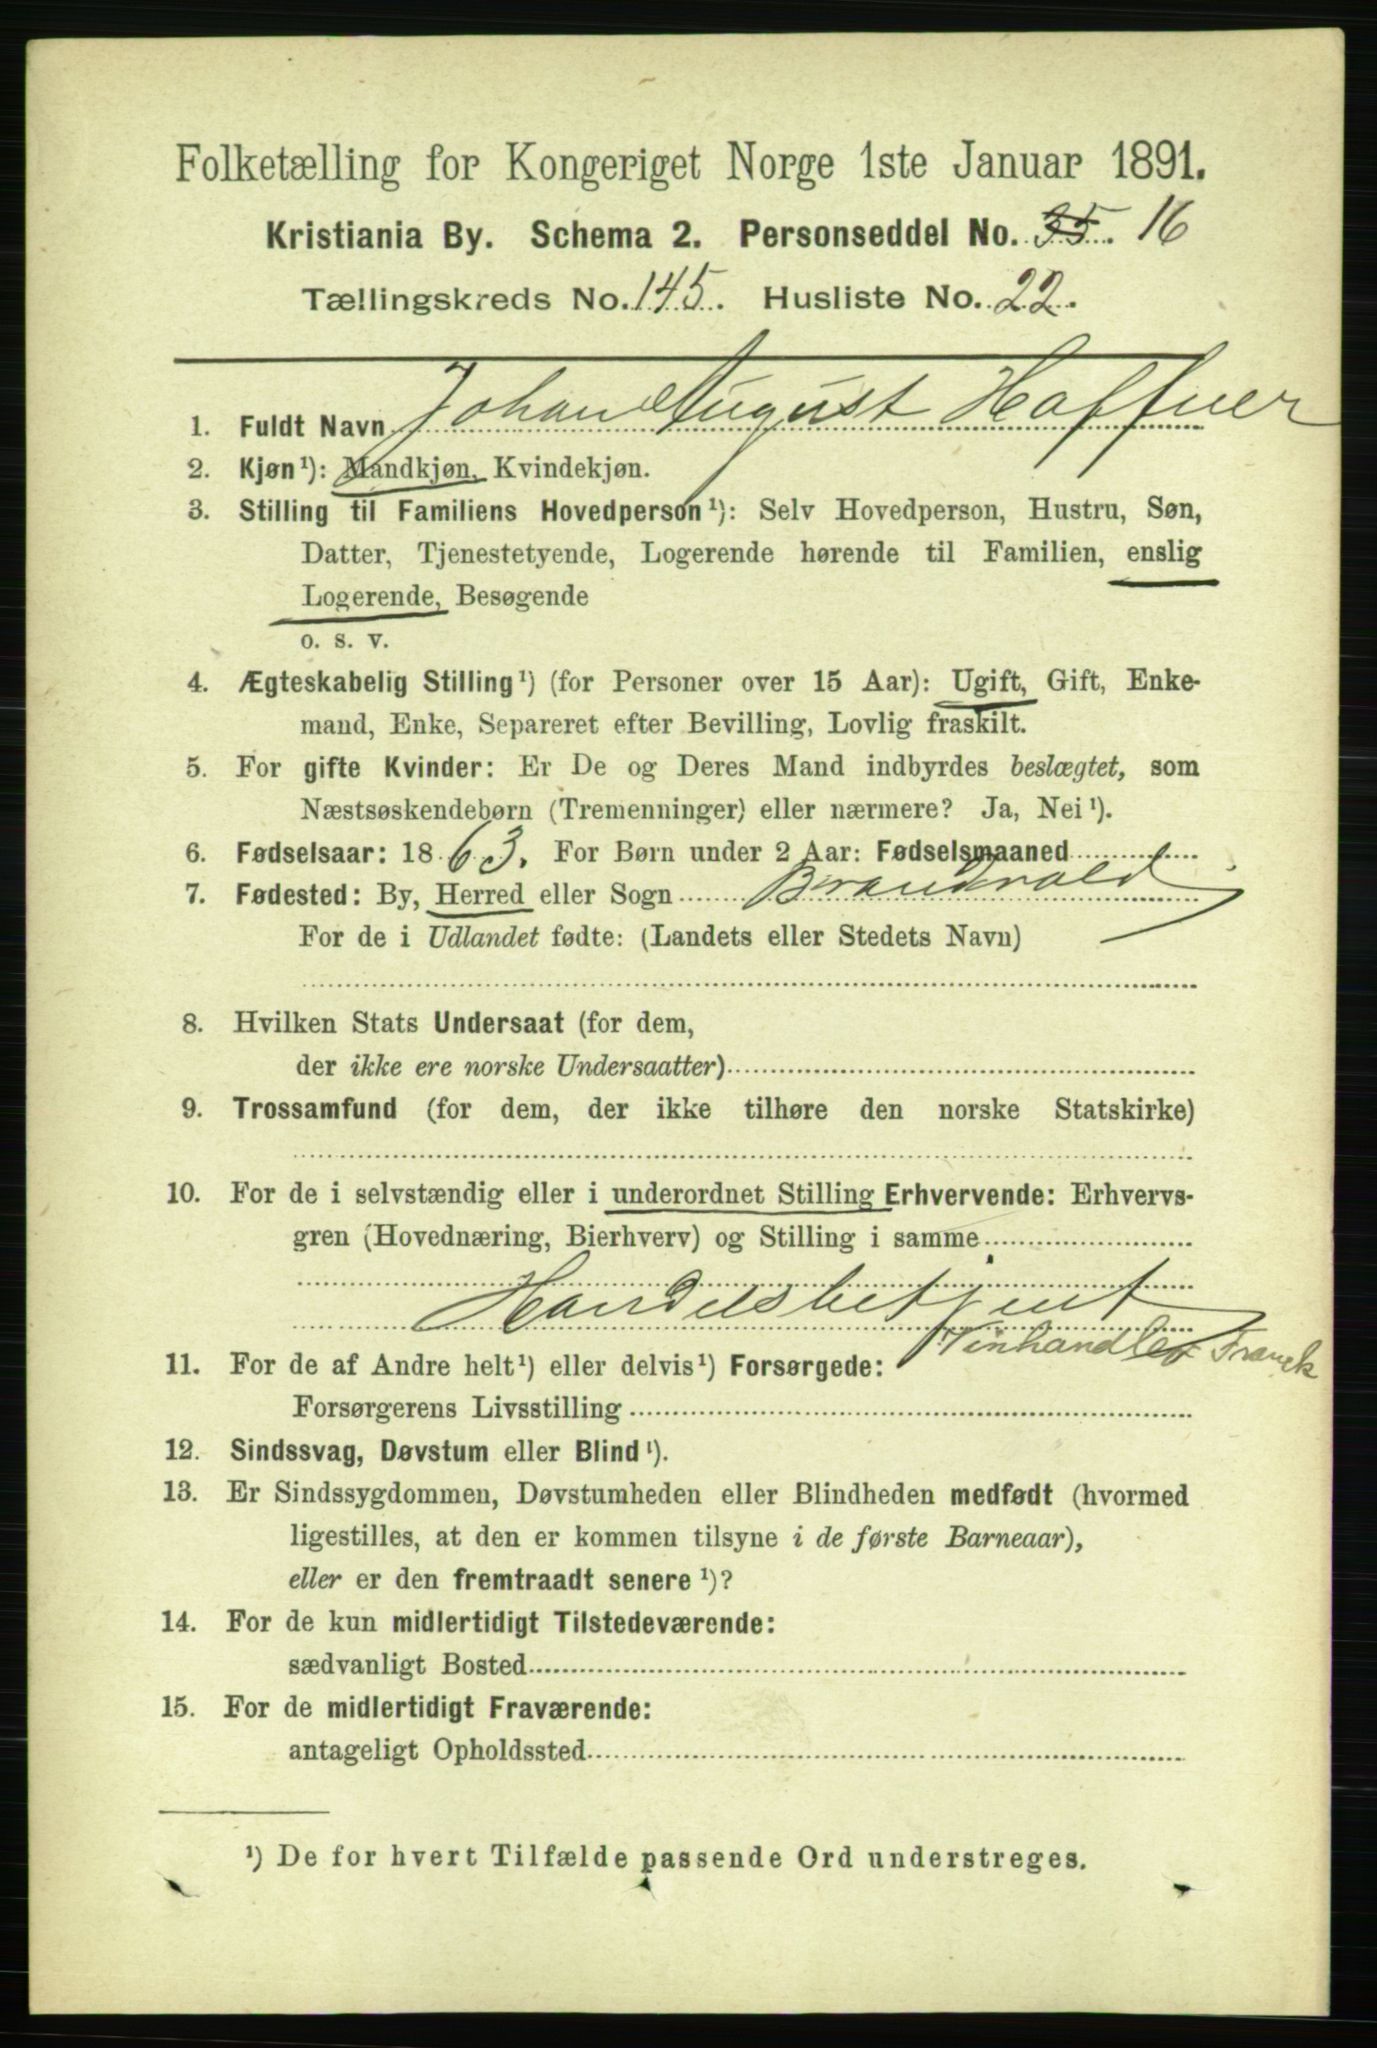 Folketælling for Kongeriget Norge 1ste Januar 1891.
Kristiania By. Schema 2. Personseddel No. 35. 16
Tællingskreds No. 145. Husliste No. 22.
1. Fuldt Navn Johan August Haffner
2. Kjøn¹): Mandkjøn, Kvindekjøn.
3. Stilling til Familiens Hovedperson¹): Selv Hovedperson, Hustru, Søn,
Datter, Tjenestetyende, Logerende hørende til Familien, enslig
Logerende, Besøgende
o. s. v.
4. Ægteskabelig Stilling¹) (for Personer over 15 Aar): Ugift, Gift, Enke-
mand, Enke, Separeret efter Bevilling, Lovlig fraskilt.
5. For gifte Kvinder: Er De og Deres Mand indbyrdes beslægtet, som
Næstsøskendebørn (Tremenninger) eller nærmere? Ja, Nei¹).
6. Fødselsaar: 1863. For Børn under 2 Aar: Fødselsmaaned
7. Fødested: By, Herred eller Sogn Brandvold
For de i Udlandet fødte: (Landets eller Stedets Navn)
8. Hvilken Stats Undersaat (for dem,
der ikke ere norske Undersaatter)
9. Trossamfund (for dem, der ikke tilhøre den norske Statskirke)
10. For de i selvstændig eller i underordnet Stilling Erhvervende: Erhvervs-
gren (Hovednæring, Bierhverv) og Stilling i samme
Handelsbetjent
Vinhandler Franck
11. For de af Andre helt¹) eller delvis¹) Forsørgede:
Forsørgerens Livsstilling
12. Sindssvag, Døvstum eller Blind¹).
13. Er Sindssygdommen, Døvstumheden eller Blindheden medfødt (hvormed
ligestilles, at den er kommen tilsyne i de første Barneaar),
eller er den fremtraadt senere¹)?
14. For de kun midlertidigt Tilstedeværende:
sædvanligt Bosted
15. For de midlertidigt Fraværende:
antageligt Opholdssted
¹) De for hvert Tilfælde passende Ord understreges.